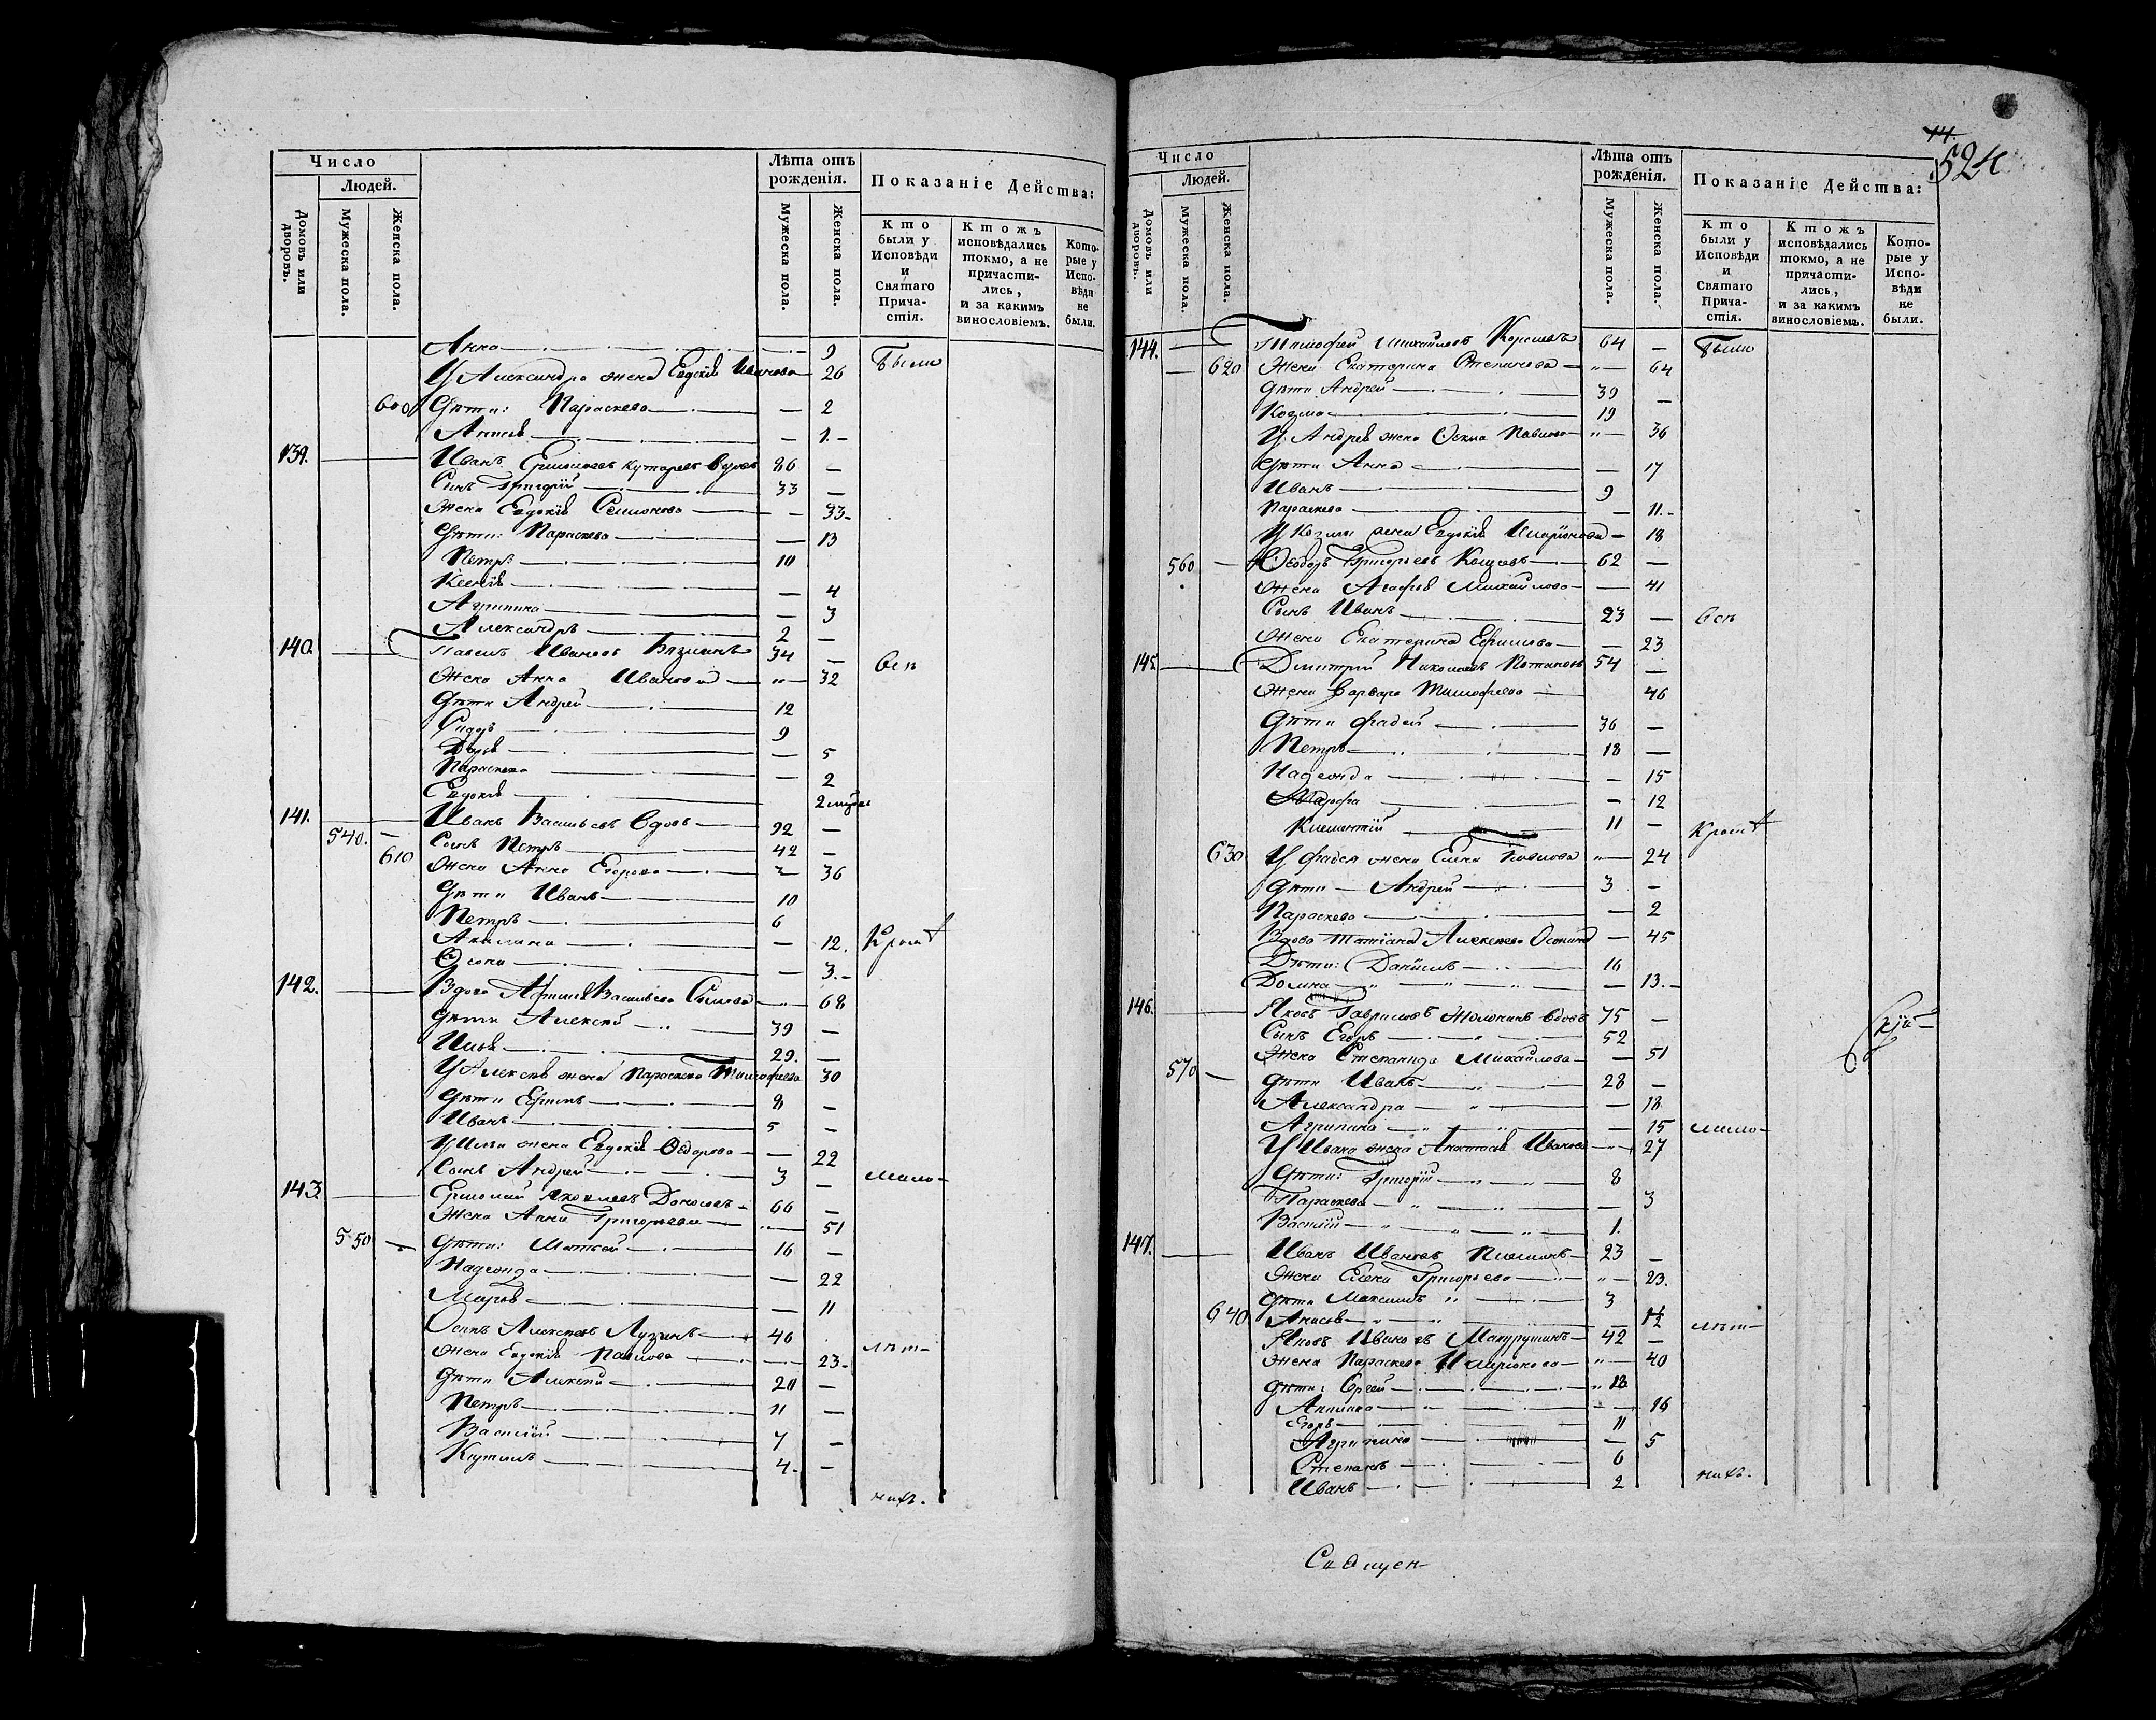 Число
Людей.
Домовъ или дворовъ.
Мужеска пола.
Женска пола.
Лѣта отъ рожденія.
Мужеска пола.
Женска пола.
Показаніе Действа:
Кто были у Исповѣди и Святаго Прича- стія.
Ктожъ исповѣдались токмо, а не причасти- лись, и за какимъ винословіемъ.
Кото- рые у Испо- вѣди не были.
Анна — 9 Были
У Александра жена Евдокія Иванова 26
600 Дѣти: Параскева — 2
Анисія — 1.
139. Иванъ Ермолаевъ вдовъ 86 —
Сынъ Григорій 33 —
Жена Евдокія Семионова — 33
Дѣти: Параскева — 13
Петръ 10
Ксенія — 4
Агрипина — 3
Александръ 2 —
140. Павелъ Ивановъ 34 —
Жена Анна Иванова — 32 вси
Дѣти Андрей 12
Сидоръ 9
Дарья — 5
Параскева — 2
Евдокія 2
141. Иванъ Васильевъ вдовъ 92 —
540. Сынъ Петръ 42 —
610 Жена Анна Егорова — 36
Дѣти Иванъ 10
Петръ 6
Акилина — 12. Кром
Ѳекла — 3.
142. Вдова Васильева 68
Дѣти Алексей 39 —
Илья 29. —
У Алексѣя жена Параскева Тимофеева 30
Дѣти Ефимъ 8 —
Иванъ 5 —
У Ильи жена Евдокія Ѳедорова — 22
Сынъ Андрей 3 — мало-
143. Ермолай Яковлевъ 66 —
Жена Анна Григорьева — 51
550 Дѣти: Матвей 16 —
Надежда — 22
Марѳа — 11
Осипъ Алексѣевъ Лузинъ 46
Жена Евдокія Павлова — 23 лѣт-
Дѣти Алексей 20 —
Петръ 11 —
Василій 7 —
4. —
нихъ.
14.
524
Число
Людей.
Домовъ или дворовъ.
Мужеска пола.
Женска пола.
Лѣта отъ рожденія.
Мужеска пола.
Женска пола.
Показаніе Действа:
Кто были у Исповѣди и Святаго Прича- стія.
Ктожъ исповѣдались токмо, а не причасти- лись, и за какимъ винословіемъ.
Кото- рые у Испо- вѣди не были.
144. Тимофей Михайловъ 64 — Были
620 Жена Екатерина Степанова — 64
Дѣти Андрей 39 —
Козма 19
У Андрея жена Ѳекла Павлова — 36
Дѣти Анна — 17
Иванъ 9
Параскева — 11.
У Козмы жена Евдокія Иларіонова — 18
560 — Ѳеодоръ Григорьевъ 62 —
Жена Агафія Михайлова — 41
Сынъ Иванъ 23 — вси
Жена Екатерина Ефимова — 23
145. Димитрій Николаевъ Потаповъ 54 —
Жена Варвара Тимофеева 46
Дѣти Фадей 36 —
Петръ 18 —
Надежда — 15
Марфа — 12
Климентій 11 — Кром
630 У Фадея жена Елена Павлова — 24
Дѣти — Андрей 3 —
Параскева — 2
Вдова Татіана Алексеева — 45
Дѣти: Даніилъ 16
Домна — 13.
146. Яковъ Гавриловъ вдовъ 75 —
Сынъ Егоръ 52
Жена Степанида Михайлова — 51
570 — Дѣти Иванъ 28 —
Александра — 18
Агрипина — 15 мало-
У Ивана жена Анастасія Иванова — 27
Дѣти: Григорій 8
Параскева — 3
Василій 1.
147. Иванъ Ивановъ 23 —
Жена Елена Григорьева — 23.
Дѣти Максимъ 3
640 Анисья 1/2 лѣт-
Яковъ Ивановъ 42 —
Жена Параскева Иларіонова — 40
Дѣти: Сергей 18
Акилина — 16
Егоръ 11
Агрипина — 5
Степанъ 6
Иванъ 2 нихъ.